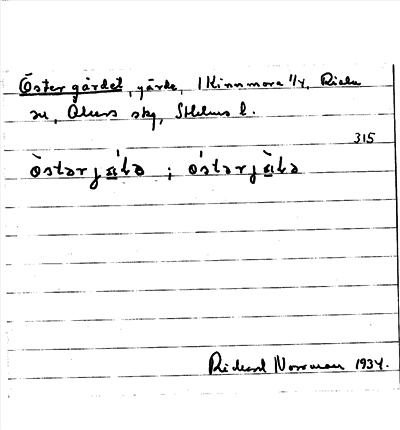 Östergärdet, gärde, 1 Kinnmora 1/4, Riala
sn, Åkers skg, Sthlms l.
315
östərjä̀ɭə ; östərjä̀ɭə
Richard Norrman 1934.